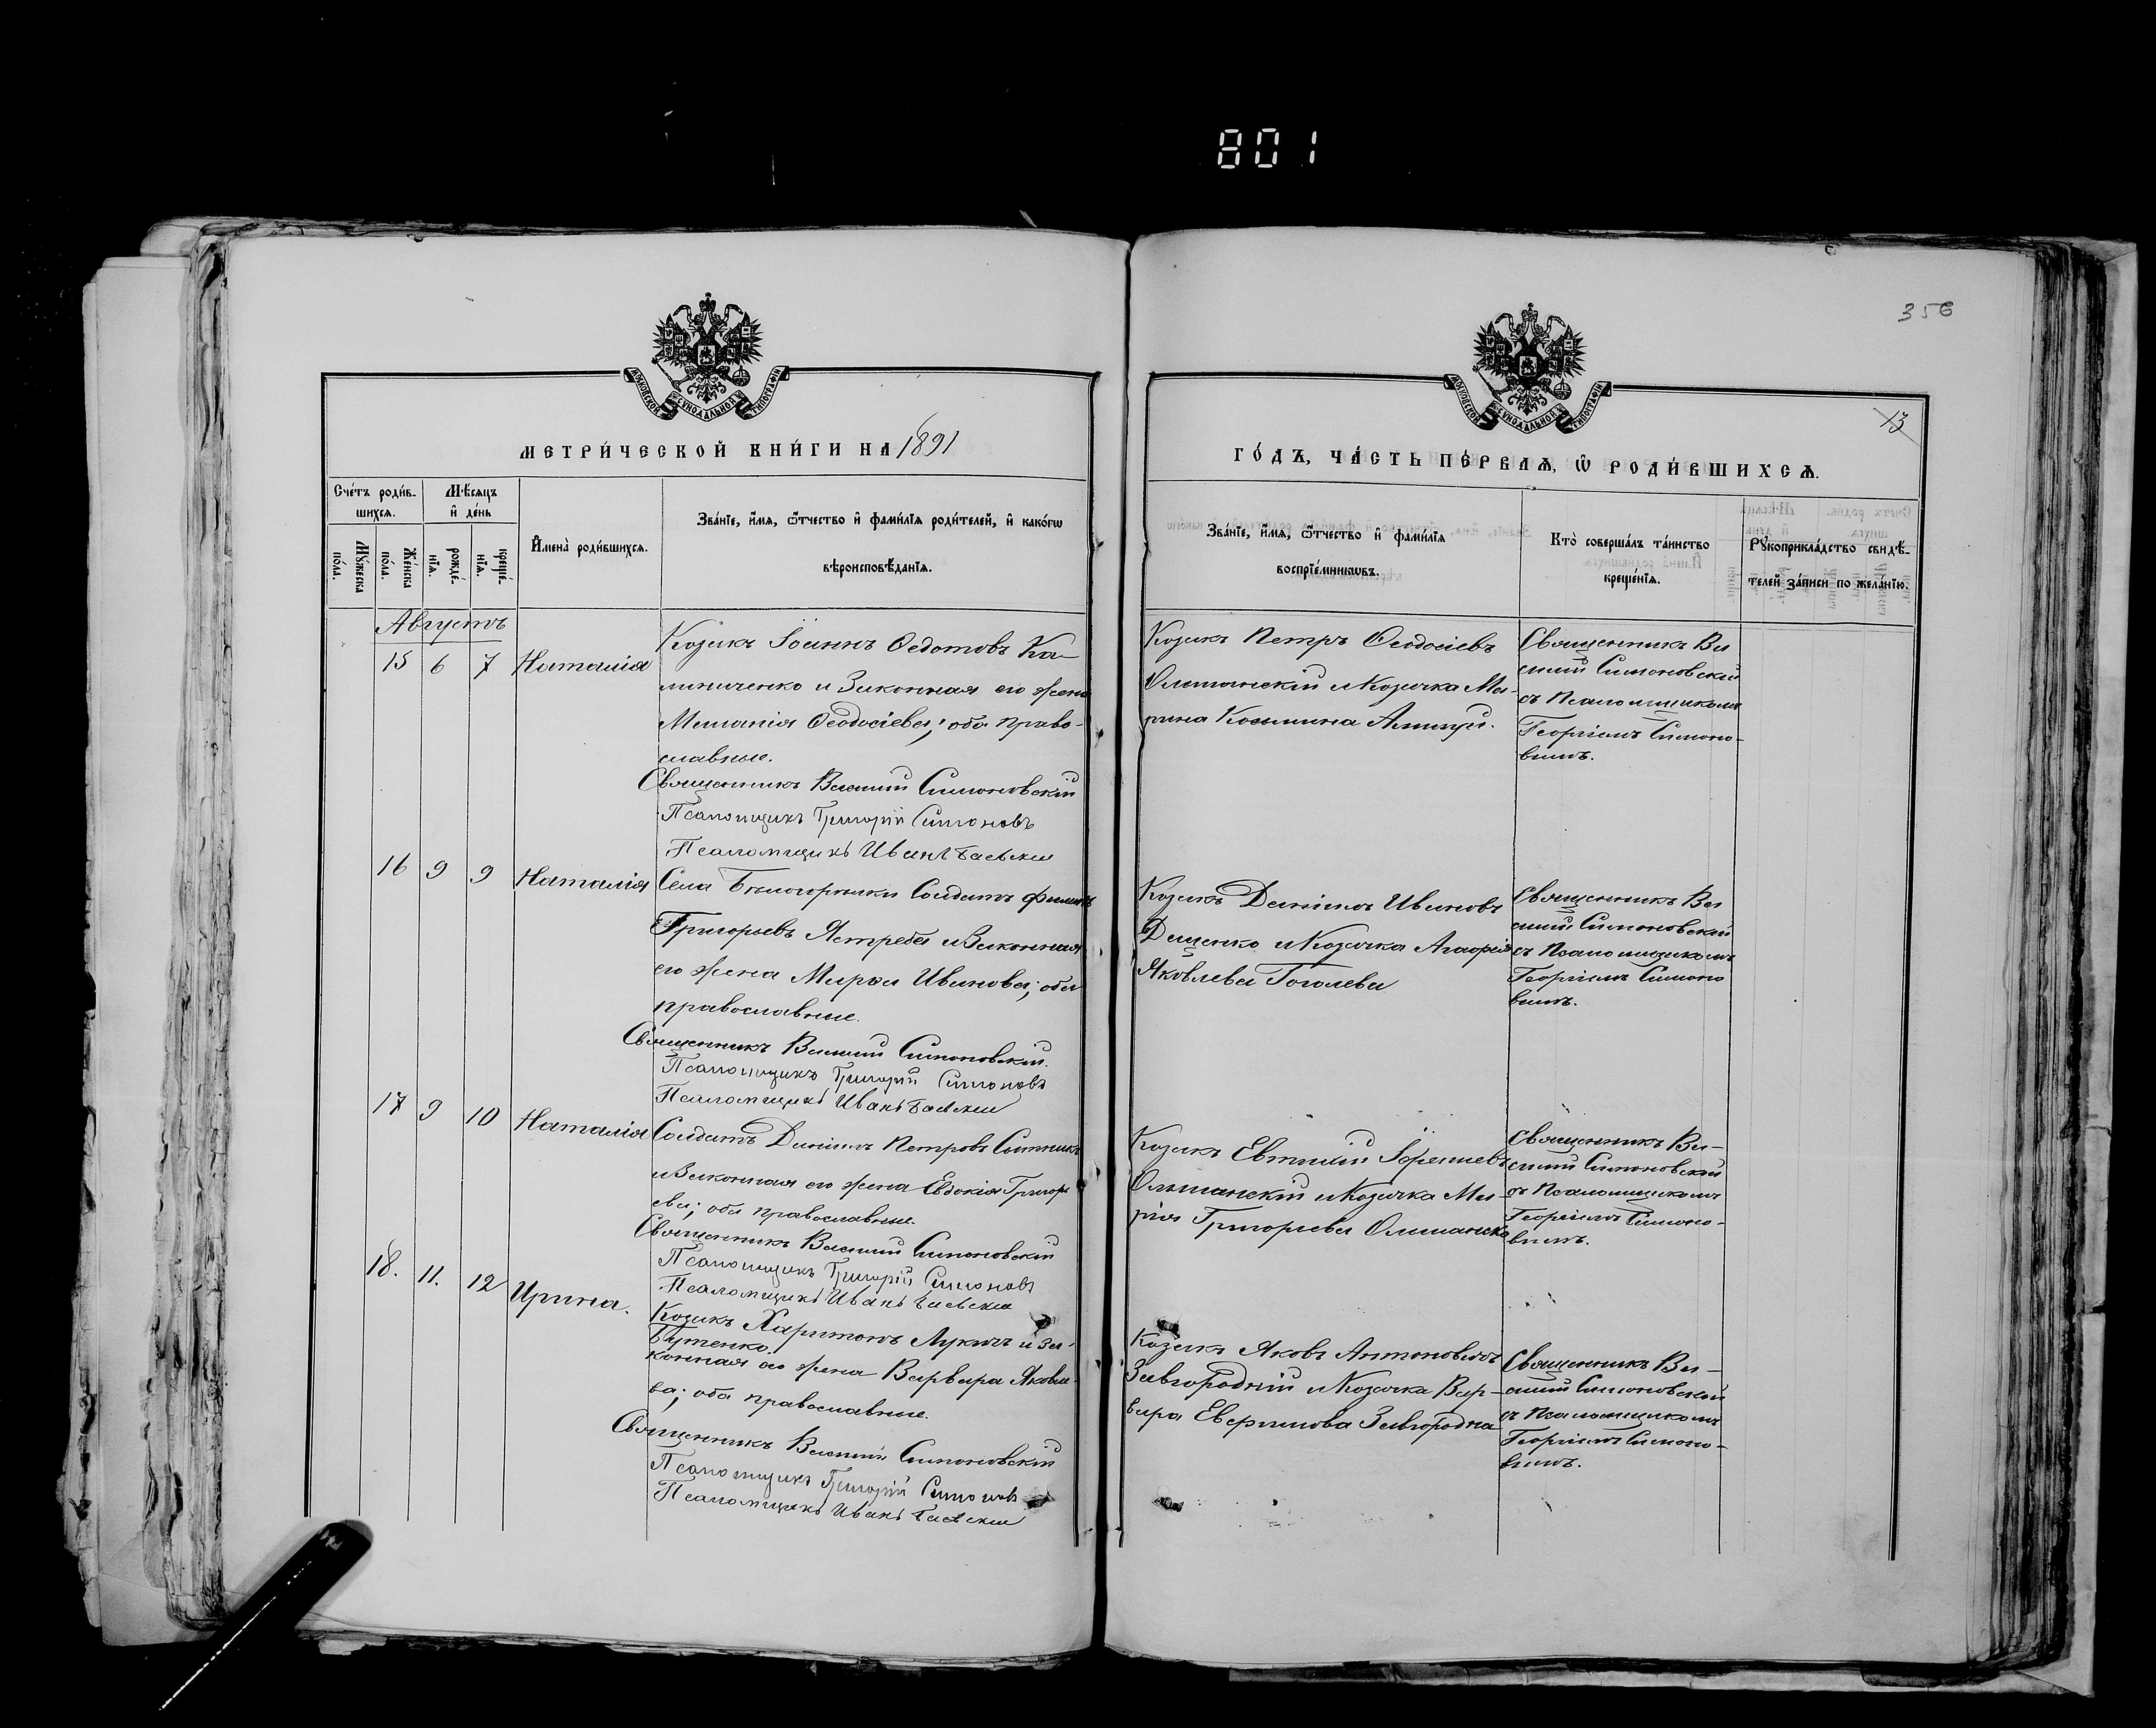 801
356
МОСКОВСКОЙ СѴНОДАЛЬНОЙ ТИПОГРАФІИ
МОСКОВСКОЙ СѴНОДАЛЬНОЙ ТИПОГРАФІИ
13
МЕТРИ́ЧЕСКОЙ КНИ́ГИ НА 1891
ГО́ДЪ, ЧА́СТЬ ПЕ́РВАѦ, Ѡ РОДИ́ВШИХСѦ.
Сче́тъ роди́в-
шихсѧ.
Мѣ́сѧцъ
и҆ де́нь
Мꙋ́жеска
по́ла.
Же́нска
по́ла.
рожде́-
нїѧ.
креще́-
нїѧ.
И҆мена̀ роди́вшихсѧ.
Зва́нїе, и҆́мѧ, ѻ҆́тчество и҆ фамилїѧ роди́телей, и҆ како́гѡ
вѣроисповѣ́данїѧ.
Зва́нїе, и҆́мѧ, ѻ҆́тчество и҆ фами́лїѧ
воспрїе́мникѡвъ.
Кто̀ соверша́лъ та́инство
креще́нїѧ.
Рꙋкоприкла́дство свидѣ́-
телей за́писи по жела́нїю.
Августъ
15 6 7 Наталія
Козакъ Іоаннъ Ѳедотовъ Ка-
линиченко и Законная его жена
Меланія Ѳеодосіева; оба право-
славные.
Священникъ Василій Симоновскій
Псаломщикъ Григорій Симоновъ
Псаломщикъ Иванъ
Козакъ Петръ Ѳеодосіевъ
Ольшанскій и Козачка Ма-
рина Косьмина
Священникъ Ва
силій Симоновскій
съ Псаломщикомъ
Георгіемъ Симоно-
вымъ.
16 9 9 Наталія
Села Бѣлогорѣлки Солдатъ Филипъ
Григорьевъ Ястреба и Законная
его жена Марѳа Иванова; оба
православные.
Священникъ Василій Симоновскій.
Псаломщикъ Григорій Симоновъ
Псаломщикъ Иванъ
Козакъ Даніилъ Ивановъ
Даценко и Козачка Агафія
Яковлева Гоголева
Священникъ Ва
силій Симоновскій
съ Псаломщикомъ
Георгіемъ Симоно
вымъ.
17 9 10 Наталія
Солдатъ Даніилъ Петровъ Сытникъ
и Законная его жена Евдокія Григорь
ева; оба православные.
Священникъ Василій Симоновскій
Псаломщикъ Григорій Симоновъ
Псаломщикъ Иванъ
Козакъ Евтихій
Ольшанскій и Козачка Ма-
рія Григорьева Ольшанска
Священникъ Ва-
силій Симоновскій
съ Псаломщикомъ
Георгіемъ Симоно-
вымъ.
18. 11. 12 Ирина.
Козакъ Харитонъ Лукичъ и За-
Бутенко
конная его жена Варвара Яковле-
ва; оба православные.
Священникъ Василій Симоновскій
Псаломщикъ Григорій Симоновъ
Псаломщикъ Иванъ
Козакъ Яковъ Антоновичъ
Завгородній и Козачка Вар-
вара Завгородня
Священникъ Ва-
силій Симоновскій
съ Псаломщикомъ
Георгіемъ Симоно-
вымъ.